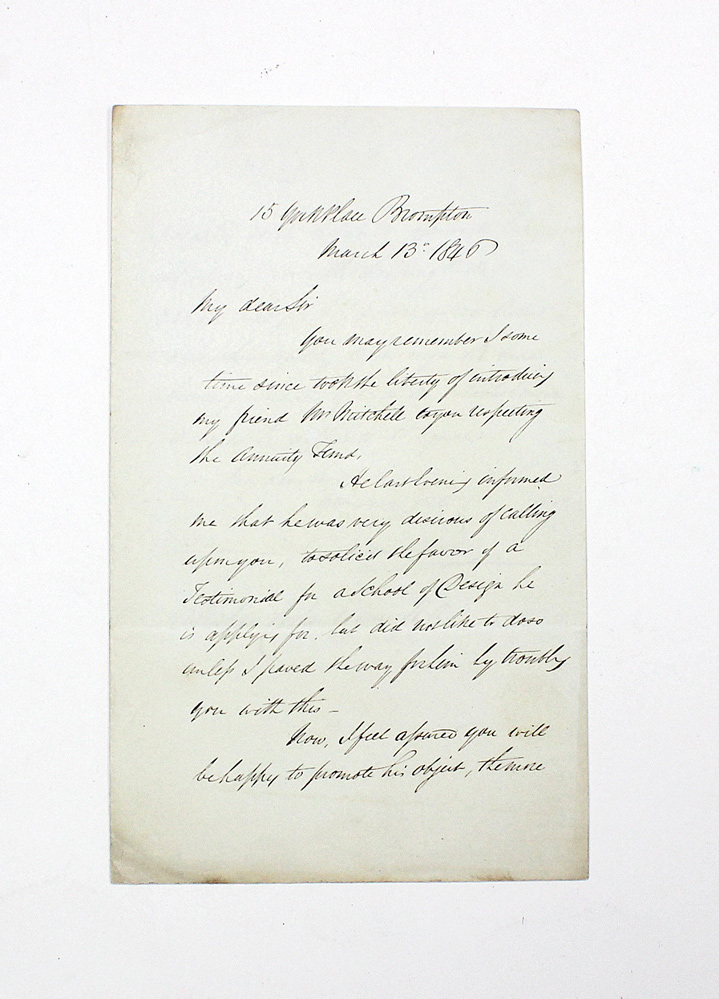 15 York Place Brompton
March 13th 1846
My dear Sir
You may remember I some
time since took the liberty of introducing
my friend Mr Mitchell to you respecting
the Annuity Fund.
He last Evening informed
me that he was very desirous of calling
upon you, to solicit the favor of a
Testimonial for a School of Design he
is applying for, but did not like to do so
unless I paved the way for him by troubling
you with this –
Now, I feel assured you will
be happy to promote his object, the more